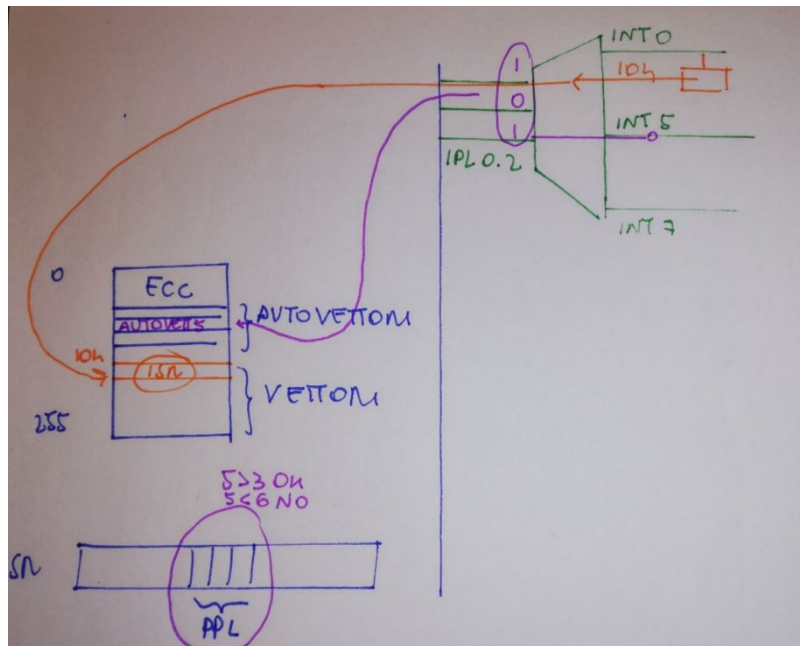 INT 0
1
10h
0
1
INT 5
IPL 0.2
INT 7
0
ECC
AUTOVETT 5
AUTOVETTORI
10h
ISR
VETTORI
255
5>3 OK
5<6 NO
SR
PPL